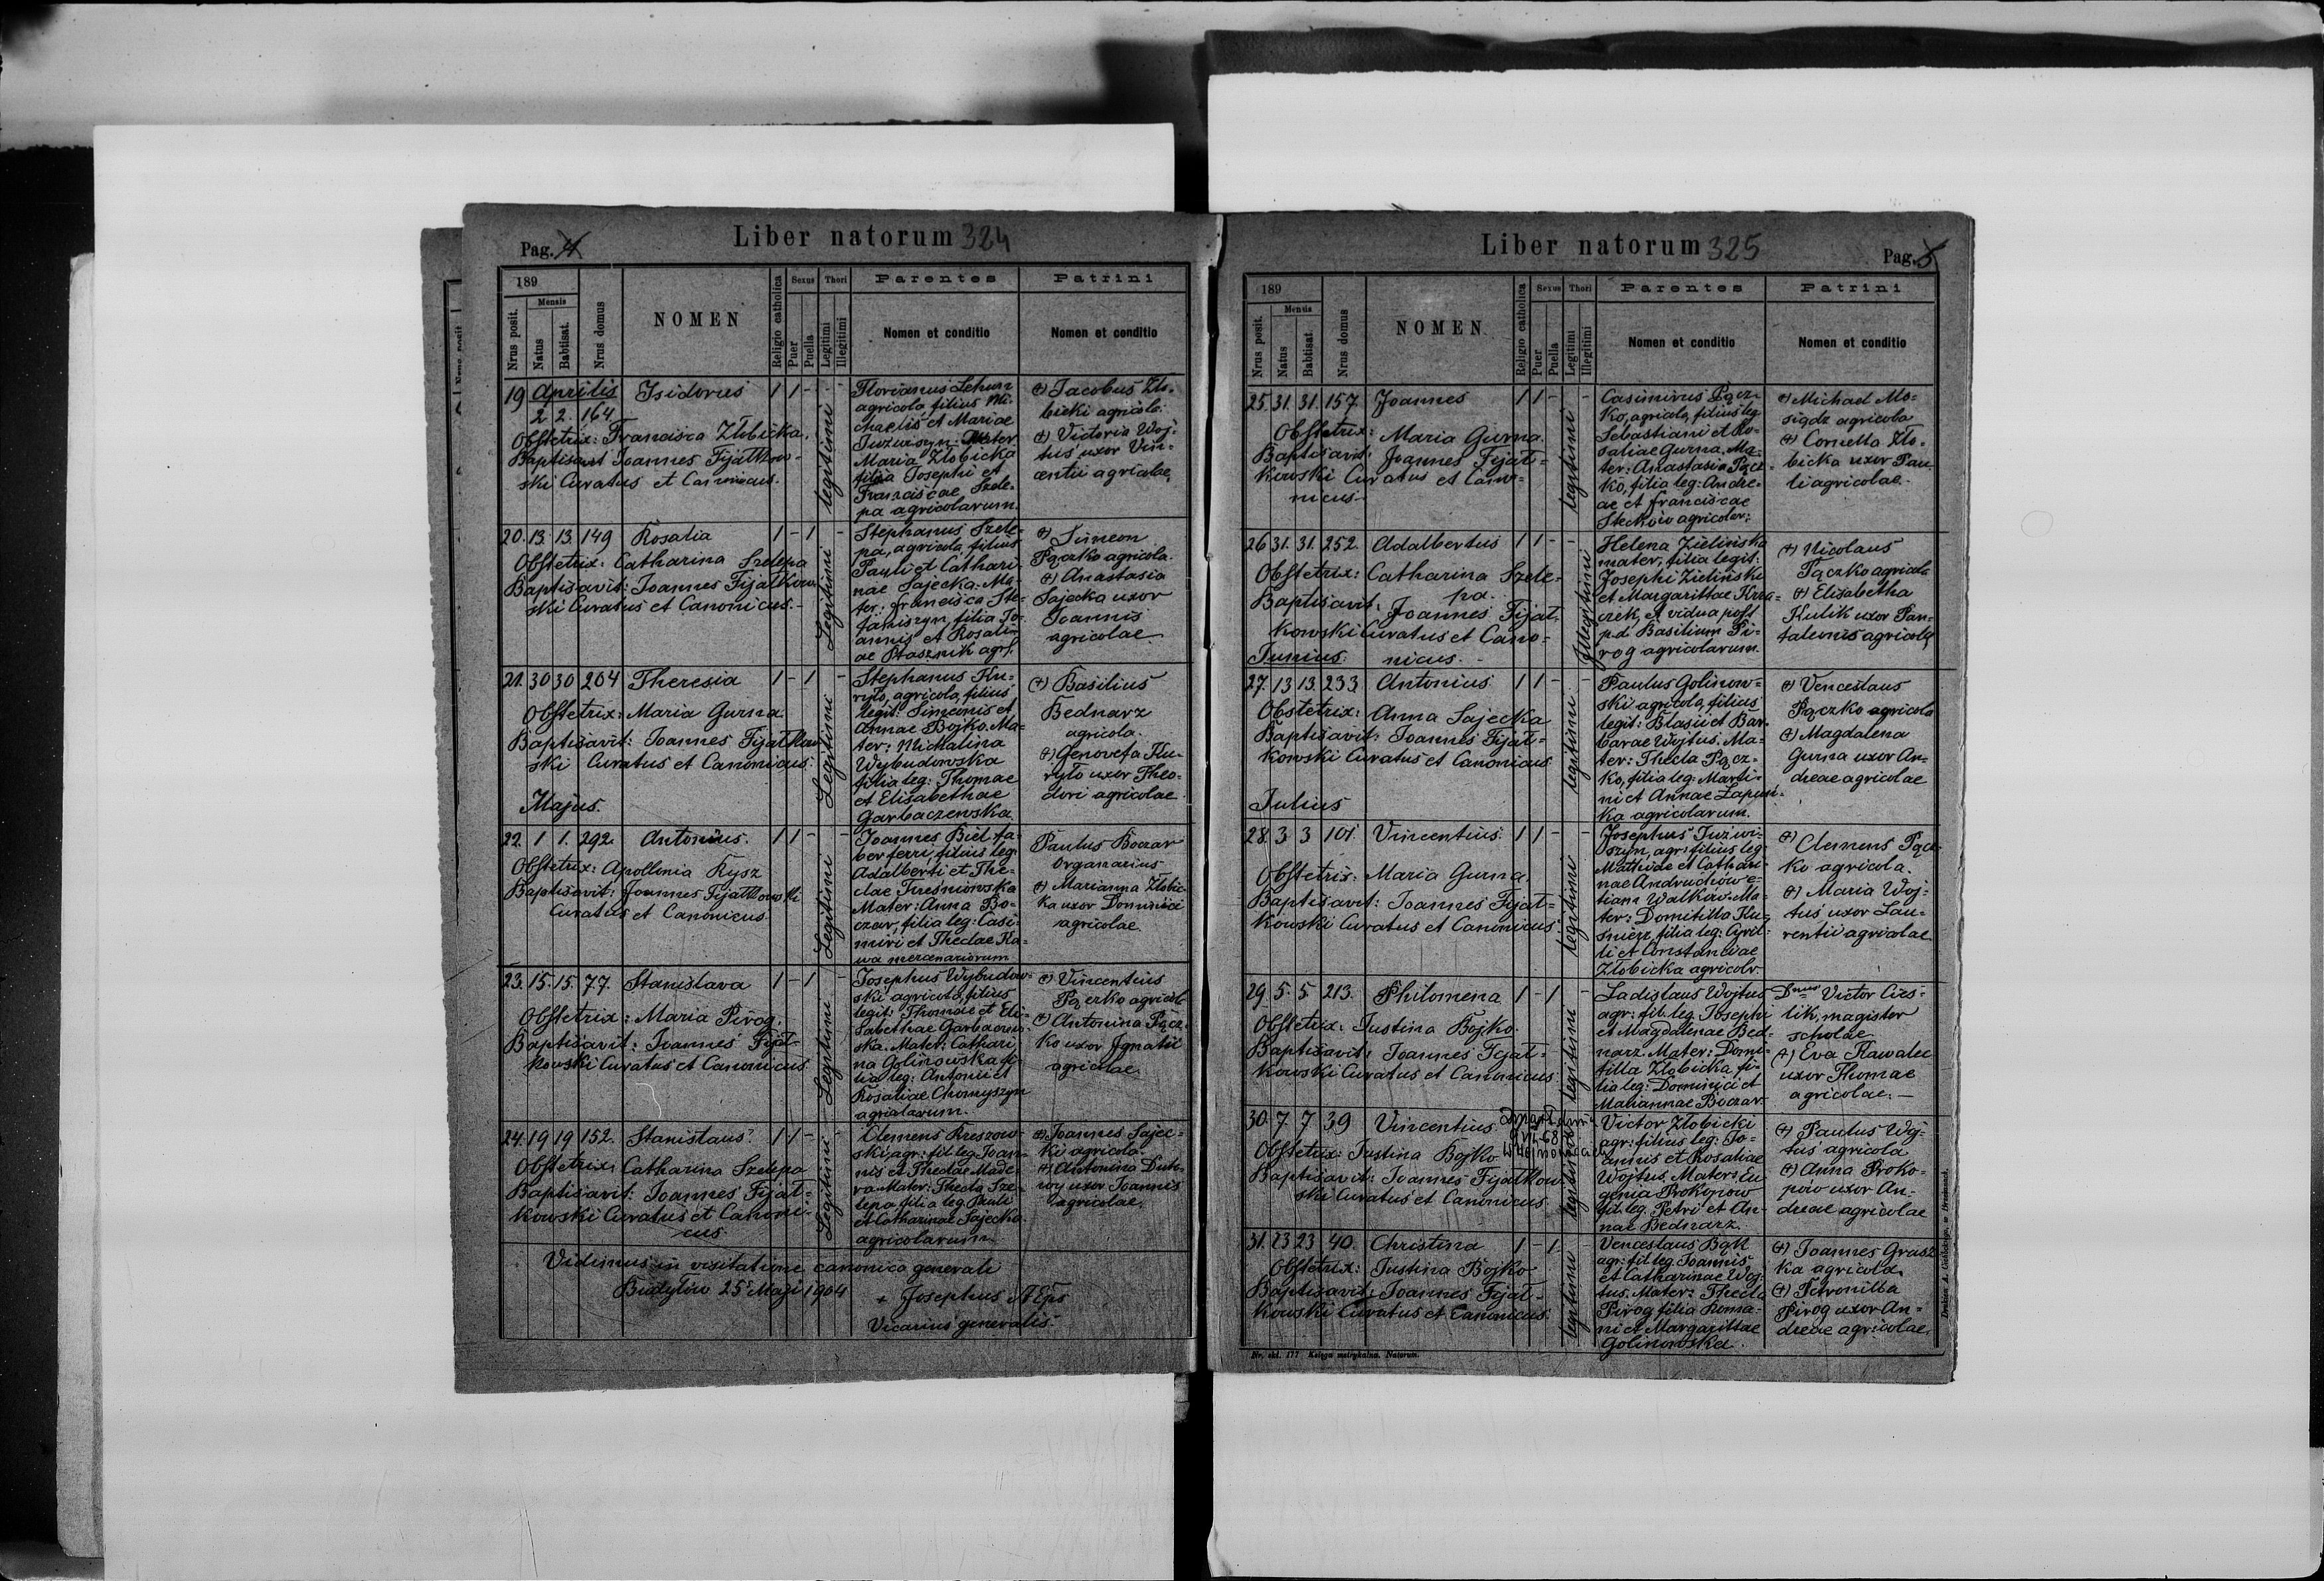 Pag. 4
Liber natorum 324
189
Mensis
Nrus posit.
Natus
Babtisat.
Nrus domus
NOMEN
Religio catholica
Sexus
Puer
Puella
Thori
Legitimi
Illegitimi
Parentes
Nomen et conditio
Patrini
Nomen et conditio
19 Aprilis Isidorus 1 1 - - -
2. 2. 164.
Obstetrix: Francisca Złobicka.
Baptisavit Joannes Fijałkow-
ski Curatus et Canonicus.
legitimi
Florianus Lehun
agricola, filius Mi-
chaelis et Mariae
Juzwiszyn: Mater
Maria Złobicka
filia Josephi et
Franciscae Szele-
pa agricolarum.
(+) Jacobus Zło-
bicki agricola:
(+) Victoria Woj-
tus uxor Vin-
centii agricolae
20. 13. 13. 149 Rosalia 1 - 1 -
Obstetrix: Catharina Szelepa
Baptisavit: Joannes Fijałkow-
ski Curatus et Canonicus.-
Legitimi
Stephanus Szele-
pa, agricola, filius
Pauli et Cathari-
nae Sajecka. Ma-
ter: Francisca Ste-
faniszyn, filia Jo-
annis et Rosali-
ae Ptasznik agr:
(+) Simeon
Pączko agricola.
(+) Anastasia
Sajecka uxor
Joannis
agricolae
21. 30 30 204 Theresia 1 - 1 -
Obstetrix: Maria Gurna
Baptisavit: Joannes Fijałkow
ski Curatus et Canonicus.
Majus.
Legitimi
Stephanus Ku-
ryło, agricola, filius
legit: Simeonis et
Annae Bojko. Ma-
ter: Michalina
Wybudowska
filia leg: Thomae
et Elisabethae
Garbaczewska
(+) Basilius
Bednarz
agricola.
(+) Genovefa Ku-
ryło uxor Theo-
dori agricolae.
22. 1 1. 292. Antonius. 1 1 - -
Obstetrix: Apollinia Kysz
Baptisavit: Joannes Fijałkowski
Curatus et Canonicus
Legitimi
Joannes Biel, fa-
ber ferri, filius leg.
Adalberti et The-
clae Tureśniowska
Mater: Anna Bo-
czar, filia leg: Casi-
miri et Theclae Ka-
wa mercenariorum
Paulus Boczar
Organarius
(+) Marianna Złobic-
ka uxor Dominici
agricolae
23. 15. 15. 77. Stanislava 1 - 1 -
Obstetrix: Maria Pirog.
Baptisavit: Joannes Fijał-
kowski Curatus et Canonicus
Legitimi
Josephus Wybudow-
ski agricola, filius
legit: Thomae et Eli-
sabethae Garbaczew-
ska. Mater: Cathari
na Golinowska fi-
lia leg: Antonii et
Rosaliae Chomyszyn
agricolarum.
(+) Vincentius
Pączko agricola
(+) Antonina Pącz-
ko uxor Ignatii
agricolae.
24. 19 19 152. Stanislaus 1 1 - -
Obstetrix: Catharina Szelepa
Baptisavit: Joannes Fijał-
kowski Curatus et Canoni-
cus.
Legitimi
Clemens Kreszow-
ski, agr: fil: leg. Joan-
nis et Theclae Made-
ra. Mater: Thecla Sze-
lepa, filia leg. Pauli
et Catharinae Sajecka
agricolarum
(+) Joannes Sajec-
ki agricola.
(+) Antonina
uxor Joannis
agricolae.
Vidimus in visitatione canonica generali
Budyłów 25 Maji 1904
+ Josephus AEps
Vicarius generalis.
Liber natorum 325
Pag. 5
189
Mensis
Nrus posit.
Natus
Babtisat.
Nrus domus
NOMEN
Religio catholica
Sexus
Puer
Puella
Thori
Legitimi
Illegitimi
Parentes
Nomen et conditio
Patrini
Nomen et conditio
25. 31. 31. 157. Joannes 1 1 - -
Obstetrix: Maria Gurna.
Baptisavit: Joannes Fijał-
kowski Curatus et Cano-
nicus.-
legitimi
Casimirus Pącz-
ko, agricola, filius leg.
Sebastiani et Ro-
saliae Gurna, Ma-
ter: Anastasia Pącz-
ko, filia leg: Andre-
ae et Franciscae
Steckow agricolar:
(+) Michael Mo-
siądz agricola
(+) Cornella Zło-
bicka uxor Pau-
li agricolae.
26. 31. 31. 252. Adalbertus 1 1 - -
Obstetrix: Catharina Szele-
pa.
Baptisavit: Joannes Fijał-
kowski Curatus et Cano-
nicus.-
Junius.
Illegitimi
Helena Zielińska
mater, filia legit:
Josephi Zieliński
et Margarittae Krza-
czek, et vidua post
p.d. Basilium Pi-
rog agricolarum.
(+) Nicolaus
Pączko agricola
(+) Elisabetha
Kulik uxor Pan-
taleonis agricolae
27. 13 13. 233 Antonius 1 1 - -
Obstetrix: Anna Sajecka
Baptisavit: Joannes Fijał-
kowski Curatus et Canonicus
Julius
legitimi
Paulus Golinow-
ski agricola, filius
legit: Blasii et Bar-
barae Wojtus. Ma-
ter: Thecla Pącz-
ko, filia leg: Marti-
ni et Annae Łapuń-
ka agricolarum.
(+) Venceslaus
Pączko agricola
(+) Magdalena
Gurna uxor An-
dreae agricolae
28. 3 3 101. Vincentius. 1 1 - -
Obstetrix: Maria Gurna.
Baptisavit: Joannes Fijał-
kowski Curatus et Canonicus.
legitimi
Josephus Juzwi-
szyn, agr: filius leg:
Mathiae et Cathari-
nae Andruchów e-
tiam Walków. Ma-
ter: Domitilla Ku-
snierz, filia leg: Cyril-
li et Constanciae
Złobicka agricolr.
(+) Clemens Pącz-
ko agricola.
(+) Maria Woj-
tus uxor Lau-
rentii agricolae
29. 5. 5. 213. Philomena 1 - 1 -
Obstetrix: Justina Bojko.
Baptisavit: Joannes Fijał-
kowski Curatus et Canonicus.
legitimi
Ladislaus Wojtus
agr: fil. leg. Josephi
et Magdalenae Bed-
narz. Mater: Domi-
tilla Złobicka, fi-
lia leg: Dominici et
Mariannae Boczar.
Dnus Victor Cieś-
lik, magister
scholae
(+) Eva Kawalec
uxor Thomae
agricolae.-
30. 7. 7 39 Vincentius
Obstetrix: Justina Bojko
Baptisavit: Joannes Fijałkow-
ski Curatus et Canonicus
legitimi
Victor Złobicki
agr: filius leg: Jo-
annis et Rosaliae
Wojtus. Mater: Eu
genia Prokopow
fil. leg. Petri et An-
nae Bednarz.
(+) Paulus Woj-
tus agricola
(+) Anna Proko-
pów uxor An-
dreae agricolae
31. 23 23 40. Christina 1 - 1 -
Obstetrix: Justina Bojko
Baptisavit: Joannes Fijał-
kowski Curatus et Canonicus.
legitimi
Venceslaus Bąk
agr: fil. leg. Joannis
et Catharinae Woj-
tus. Mater: Thecla
Pirog filia Roma-
ni et Margarittae
Golinowska.
(+) Joannes Grusz-
ka agricola
(+) Petronilla
Pirog uxor An-
dreae agricolae.
Nr. skł. 177. Księga metrykalna. Natorum.